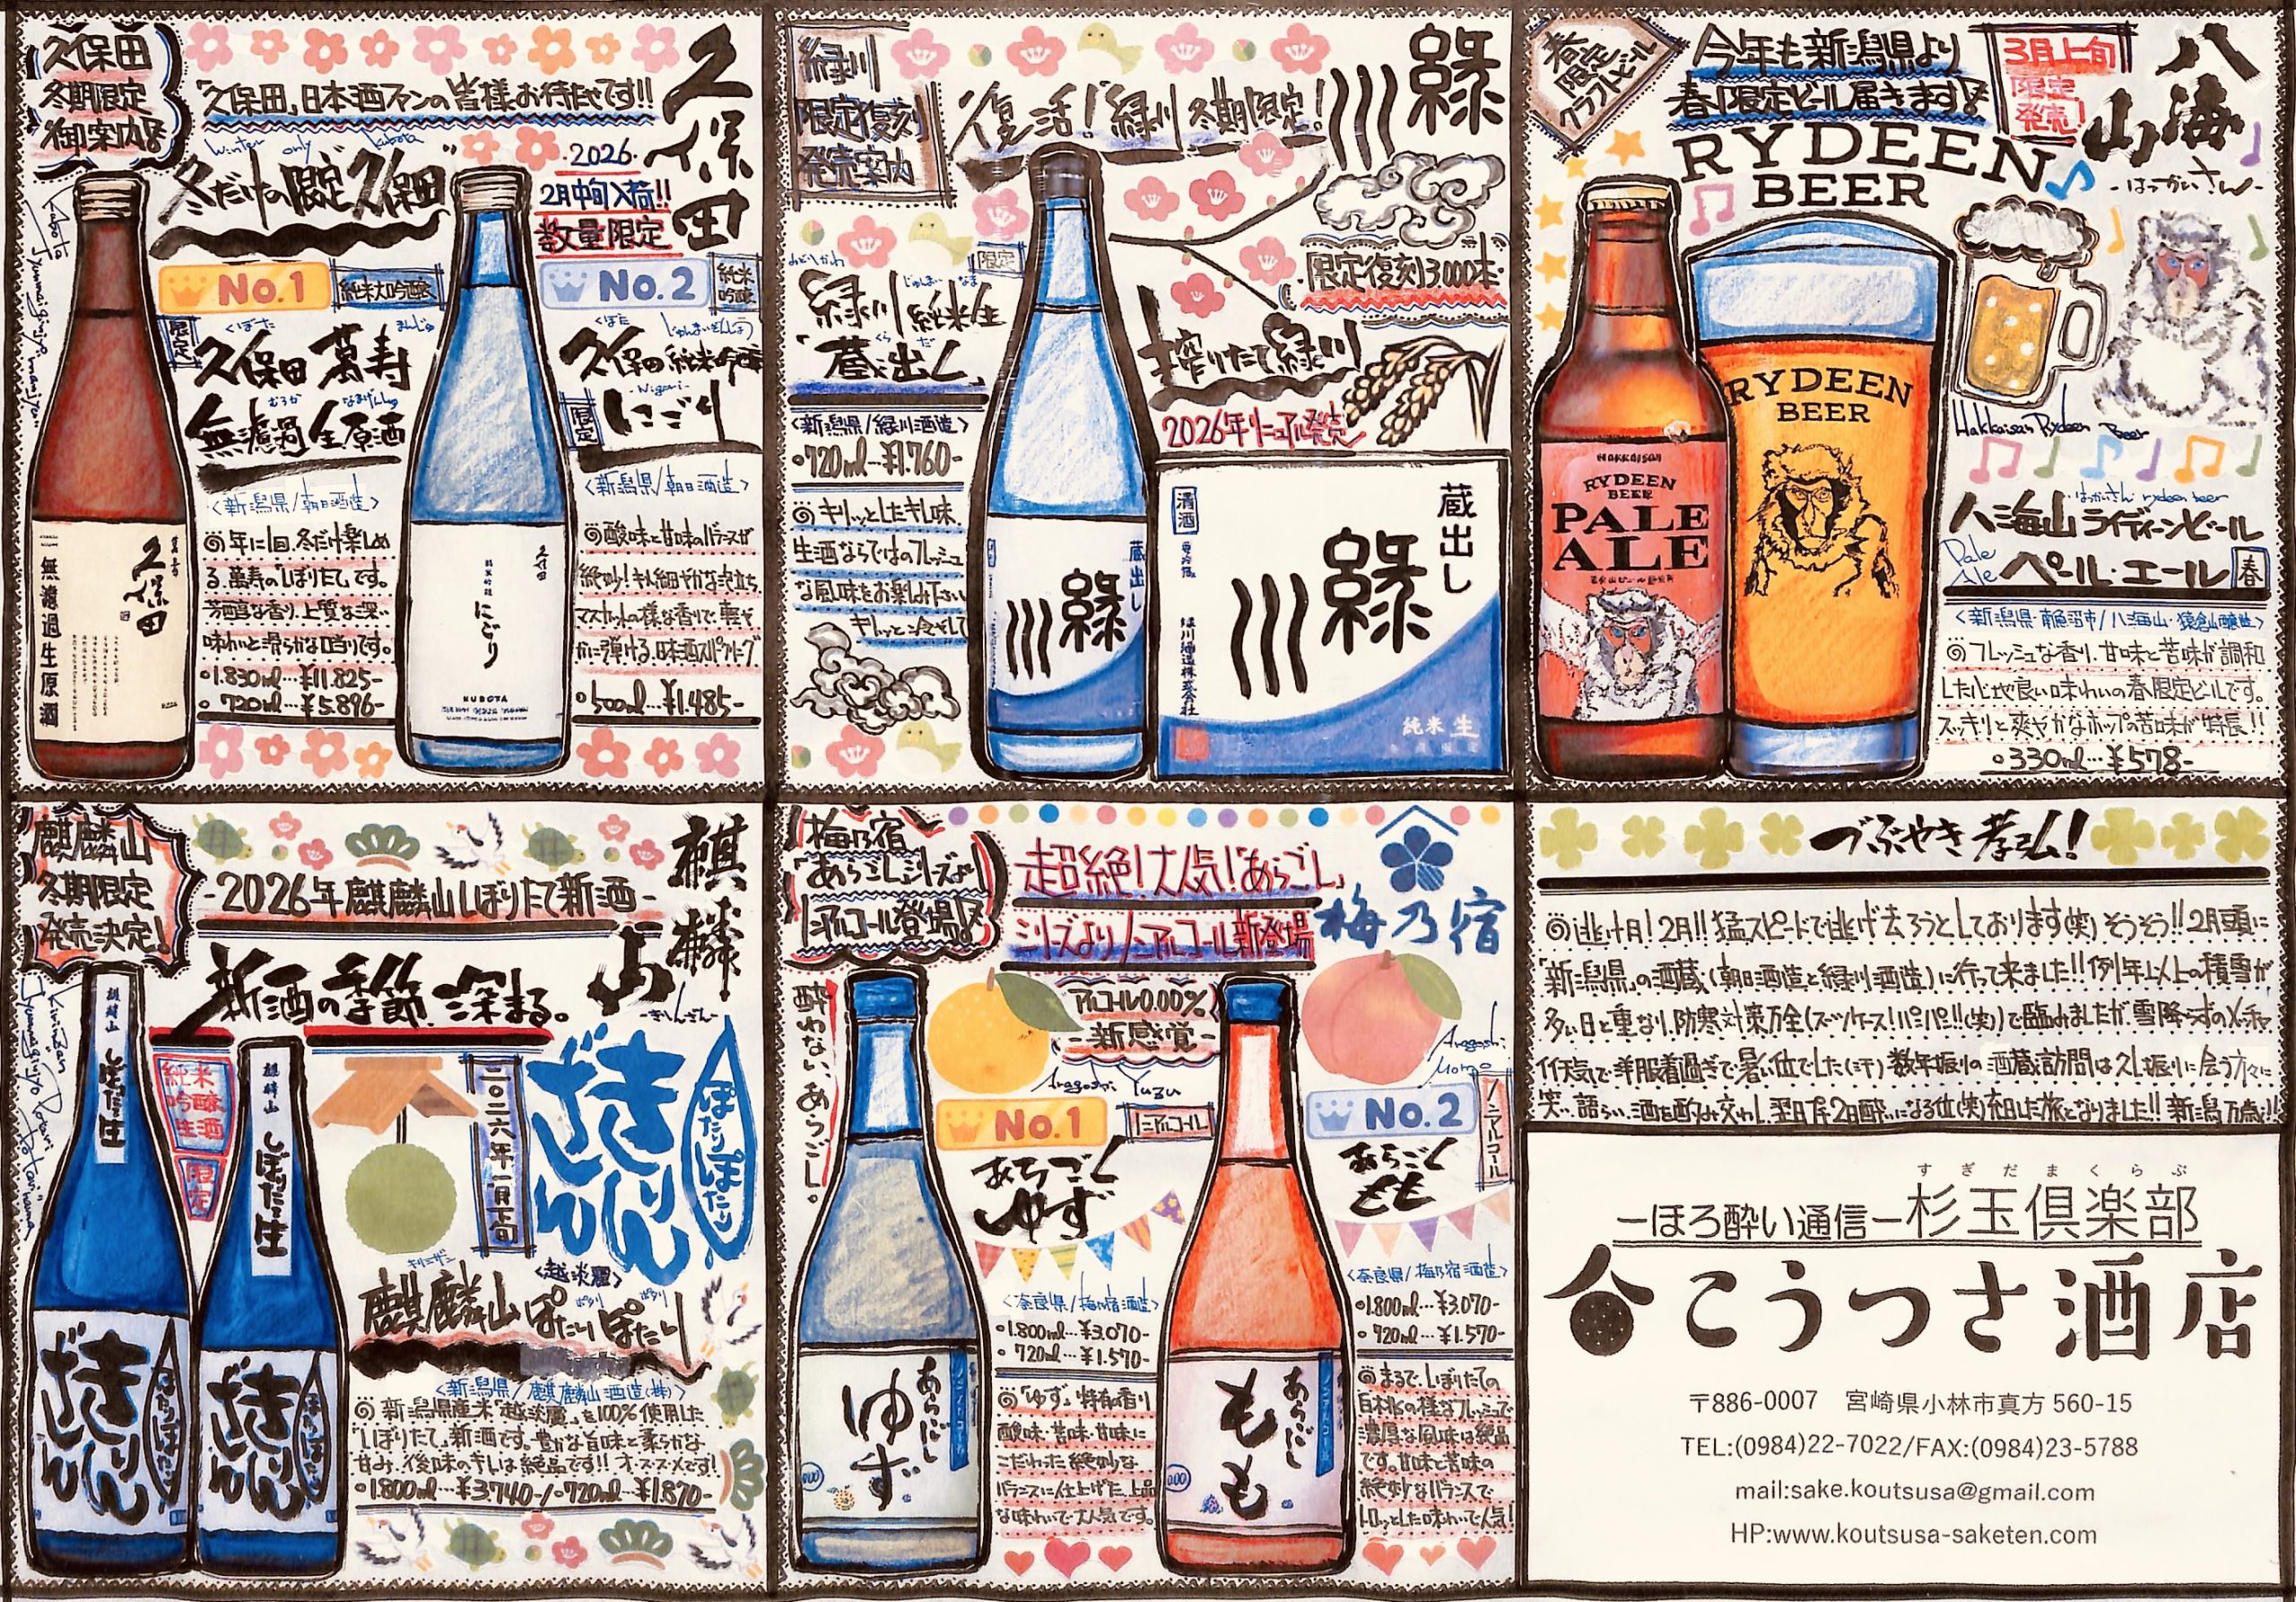 久保田
冬期限定
御案内!!
「久保田」日本酒ファンの皆様お待たせです!!
久保田
Winter only Kubota
冬だけの限定"久保田"
2026
2月中旬入荷!!
数量限定
No.1
純米大吟醸
限定
くぼた まんじゅ
久保田 萬寿
むろか なまげんしゅ
無濾過生原酒
<新潟県/朝日酒造>
◎年に1回、冬だけ楽しめ
る、萬寿の「しぼりたて」です。
芳醇な香り、上質な深い
味わいと滑らかな口当りです。
・1.830ml…¥11.825-
・720ml…¥5.896-
久保田
萬寿
無濾過生原酒
No.2
純米吟醸
くぼた じゅんまいぎんじょう
久保田 純米吟醸
-Nigori-
限定
にごり
<新潟県/朝日酒造>
◎酸味と甘味のバランスが
絶妙!キメ細やかな泡立ち、
マスカットの様な香りで、軽や
かに弾ける、日本酒スパークリング
・500ml…¥1.485-
久保田
純米吟醸
にごり
KUBOTA
緑川
限定復刻
発売案内
復活!緑川 冬期限定!
緑川
限定復刻3,000本
みどりかわ じゅんまい なま
限定
緑川 純米生
くら だ
蔵出し
搾りたて緑川
2026年リニューアル発売
<新潟県/緑川酒造>
・720ml…¥1.760-
◎キリッとしたキレ味、
生酒ならではのフレッシュ
な風味をお楽しみ下さい
キリッと冷やして
蔵出し
緑川
清酒
蔵出し
緑川
緑川酒造株式会社
純米 生
春
限定
クラフトビール
今年も新潟県より
春限定ビール届きます!!
3月上旬
限定
発売
八海山
-はっかいさん-
RYDEEN
BEER
HAKKAISAN
RYDEEN
BEER
PALE
ALE
RYDEEN
BEER
Hakkaisan Rydeen Beer
はっかいさん rydeen beer
八海山ライディーンビール
Pale Ale
ペール・エール 春
<新潟県・南魚沼市/八海山・猿倉山醸造>
◎フレッシュな香り、甘味と苦味が調和
した心地良い味わいの春限定ビールです。
スッキリと爽やかなホップの苦味が特長!!
・330ml…¥578-
麒麟山
冬期限定
発売決定!
-2026年麒麟山しぼりたて新酒-
麒麟山
-きりんざん-
新酒の季節、深まる。
純米
吟醸
生酒
限定
二〇二六年二月下旬
きりんざん
ぽたりぽたり
麒麟山
しぼりたて生
麒麟山
しぼりたて生
きりんざん
ぽたりぽたり
きりんざん
ぽたりぽたり
<越淡麗>
キリンザン ポタリ ポタリ
麒麟山 ぽたりぽたり
<新潟県/麒麟山酒造(株)>
◎新潟県産米「越淡麗」を100%使用した
「しぼりたて」新酒です。豊かな旨味と柔らかな
甘み、後味のキレは絶品です!!オススメです!
・1.800ml…¥3.740-/・720ml…¥1.870-
梅乃宿
「あらごし」シリーズより
ノンアルコール登場!!
超絶!大人気!「あらごし」
シリーズよりノンアルコール新登場
梅乃宿
酔わない、あらごし。
アルコール0.00%
-新感覚-
Aragoshi Yuzu
No.1
ノンアルコール
あらごし
ゆず
<奈良県/梅乃宿酒造>
・1.800ml…¥3.070-
・720ml…¥1.570-
◎「ゆず」特有の香り
酸味・苦味・甘味に
こだわった絶妙な
バランスに仕上げた、上品
な味わいで大人気です。
あらごし
ゆず
0.00
Aragoshi
Momo
No.2
ノンアルコール
あらごし
もも
<奈良県/梅乃宿酒造>
・1.800ml…¥3.070-
・720ml…¥1.570-
◎まるで、しぼりたての
白桃の様なフレッシュで
濃厚な風味は絶品
です。甘味と苦味の
絶妙なバランスで
トロッとした味わいで人気!
あらごし
もも
0.00
ノンアルコール
づぶやき孝弘!
◎逃げ月!2月!!猛スピードで逃げ去ろうとしております(笑)そうそう!!2月頭に
「新潟県」の酒蔵(朝日酒造と緑川酒造)に行って来ました!!例年以上の積雪が
多い日と重なり、防寒対策万全(スーツケース!パンパン!!(笑))で臨みましたが、雪降らずのメッチャ
イイ天気で、洋服着過ぎで暑い位でした(汗)数年振りの酒蔵訪問は久し振りに会う方々に
笑い、語らい、酒を酌み交わし、翌日プチ2日酔いになる位(笑)充実した旅となりました!!新潟万歳!!
すぎだまくらぶ
-ほろ酔い通信-杉玉倶楽部
こうつさ酒店
〒886-0007 宮崎県小林市真方 560-15
TEL:(0984)22-7022/FAX:(0984)23-5788
mail:sake.koutsusa@gmail.com
HP:www.koutsusa-saketen.com